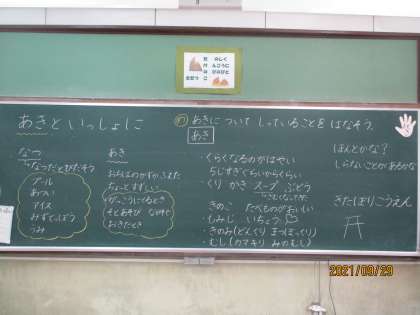 あきと いっしょに
め あきに ついて しっていることを はなそう。
あき
なつ
→なつだとびだそう
プール
あつい
アイス
みずでっぽう
うみ
あき
ちょっとすずしい
がっこうにくるとき
そとあそび なかやすみ
おきたとき
くらくなるのがはやい
5じすぎぐらいからくらい
くり かき スープ ぶどう
きのこ たべものがおいしい
・もみじ いちょう
・きのみ(どんぐり まつぼっくり)
・むし(カマキリ みのむし)
ほんとかな?
しらないことがあるかな
きたほりこうえん
2021/09/29